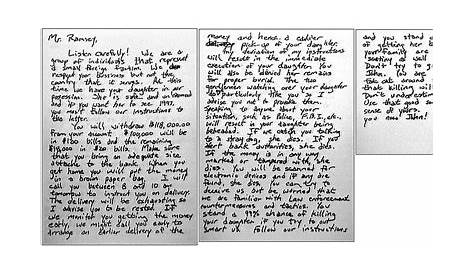 Mr. Ramsey,
Listen carefully! We are a
group of individuals that represent
a small foreign faction. We
respect your bussiness but not the
country that it serves. At this
time we have your daughter in our
posession. She is safe and unharmed
and if you want her to see 1997,
you must follow our instructions to
the letter.
You will withdraw $118,000.00
from your account. $100,000 will be
in $100 bills and the remaining
$18,000 in $20 bills. Make sure
that you bring an adequate size
attache to the bank. When you
get home you will put the money
in a brown paper bag. I will
call you between 8 and 10 am
tomorrow to instruct you on delivery.
The delivery will be exhausting so
I advise you to be rested. If
we monitor you getting the money
early, we might call you early to
arrange an earlier delivery of the
money and hence a earlier
pick-up of your daughter.
Any deviation of my instructions
will result in the immediate
execution of your daughter. You
will also be denied her remains
for proper burial. The two
gentlemen watching over your daughter
do particularly like you so I
advise you not to provoke them.
Speaking to anyone about your
situation, such as Police, F.B.I., etc.,
will result in your daughter being
beheaded. If we catch you talking
to a stray dog, she dies. If you
alert bank authorities, she dies.
If the money is in any way
marked or tampered with, she
dies. You will be scanned for
electronic devices and if any are
found, she dies. You can try to
deceive us but be warned that
we are familiar with Law enforcement
countermeasures and tactics. You
stand a 99% chance of killing
your daughter if you try to out
smart us. Follow our instructions
and you stand
of getting her b
your family are
scrutiny as well
Don't try to g
John. You are
fat cat around
that killing will
Don't underestim
Use that good so
sense of yours.
you now John!